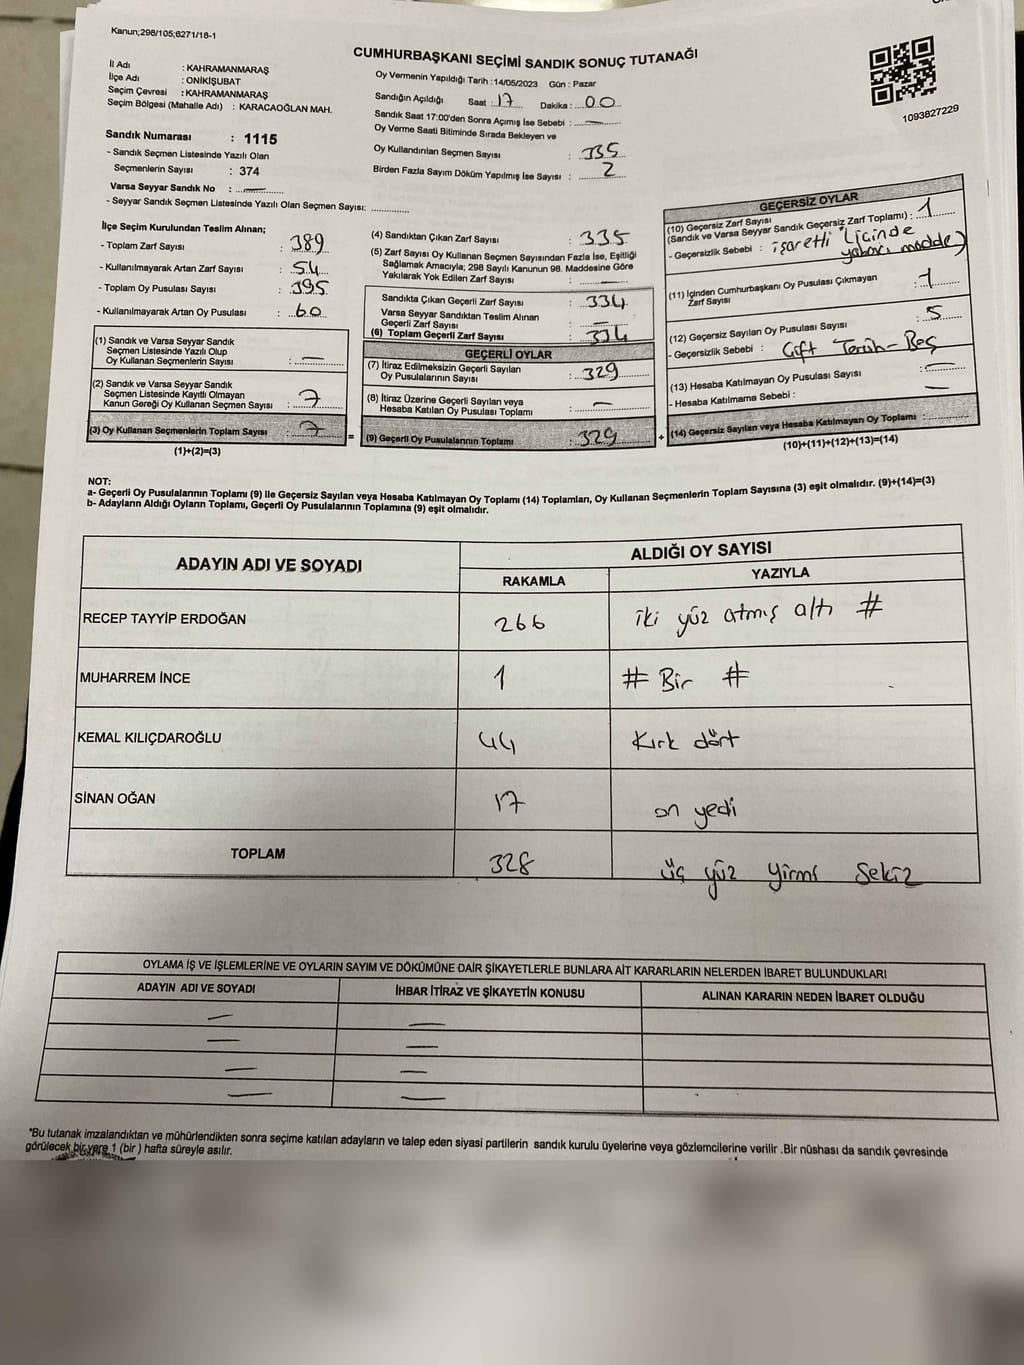 Kanun;298/105;6271/18-1
CUMHURBAŞKANI SEÇİMİ SANDIK SONUÇ TUTANAĞI
İl Adı : KAHRAMANMARAŞ
İlçe Adı : ONİKİŞUBAT
Seçim Çevresi : KAHRAMANMARAŞ
Seçim Bölgesi (Mahalle Adı) : KARACAOĞLAN MAH.
Sandık Numarası : 1115
- Sandık Seçmen Listesinde Yazılı Olan
Seçmenlerin Sayısı : 374
Varsa Seyyar Sandık No :
- Seyyar Sandık Seçmen Listesinde Yazılı Olan Seçmen Sayısı:
Oy Vermenin Yapıldığı Tarih :14/05/2023 Gün : Pazar
Sandığın Açıldığı Saat : 17 Dakika : 00
Sandık Saat 17:00'den Sonra Açımış İse Sebebi : —
Oy Verme Saati Bitiminde Sırada Bekleyen ve
Oy Kullandırılan Seçmen Sayısı : 335
Birden Fazla Sayım Döküm Yapılmış İse Sayısı : 2
1093827229
İlçe Seçim Kurulundan Teslim Alınan;
- Toplam Zarf Sayısı : 389
- Kullanılmayarak Artan Zarf Sayısı : 54
- Toplam Oy Pusulası Sayısı : 395
- Kullanılmayarak Artan Oy Pusulası : 60
(1) Sandık ve Varsa Seyyar Sandık
Seçmen Listesinde Yazılı Olup
Oy Kullanan Seçmenlerin Sayısı : —
(2) Sandık ve Varsa Seyyar Sandık
Seçmen Listesinde Kayıtlı Olmayan
Kanun Gereği Oy Kullanan Seçmen Sayısı : 7
(3) Oy Kullanan Seçmenlerin Toplam Sayısı : 7
(1)+(2)=(3)
=
(4) Sandıktan Çıkan Zarf Sayısı : 335
(5) Zarf Sayısı Oy Kullanan Seçmen Sayısından Fazla İse, Eşitliği
Sağlamak Amacıyla; 298 Sayılı Kanunun 98. Maddesine Göre
Yakılarak Yok Edilen Zarf Sayısı : —
Sandıkta Çıkan Geçerli Zarf Sayısı : 334
Varsa Seyyar Sandıktan Teslim Alınan
Geçerli Zarf Sayısı : —
(6) Toplam Geçerli Zarf Sayısı : 334
GEÇERLİ OYLAR
(7) İtiraz Edilmeksizin Geçerli Sayılan
Oy Pusulalarının Sayısı : 329
(8) İtiraz Üzerine Geçerli Sayılan veya
Hesaba Katılan Oy Pusulası Toplamı : —
(9) Geçerli Oy Pusulalarının Toplamı : 329
+
GEÇERSİZ OYLAR
(10) Geçersiz Zarf Sayısı
(Sandık ve Varsa Seyyar Sandık Geçersiz Zarf Toplamı) : 1
- Geçersizlik Sebebi : işaretli (içinde
yabancı madde)
(11) İçinden Cumhurbaşkanı Oy Pusulası Çıkmayan
Zarf Sayısı :
(12) Geçersiz Sayılan Oy Pusulası Sayısı : 5
- Geçersizlik Sebebi : Çift Tercih - Beş
(13) Hesaba Katılmayan Oy Pusulası Sayısı : —
- Hesaba Katılmama Sebebi : —
(14) Geçersiz Sayılan veya Hesaba Katılmayan Oy Toplamı :
(10)+(11)+(12)+(13)=(14)
NOT:
a- Geçerli Oy Pusulalarının Toplamı (9) ile Geçersiz Sayılan veya Hesaba Katılmayan Oy Toplamı (14) Toplamları, Oy Kullanan Seçmenlerin Toplam Sayısına (3) eşit olmalıdır. (9)+(14)=(3)
b- Adayların Aldığı Oyların Toplamı, Geçerli Oy Pusulalarının Toplamına (9) eşit olmalıdır.
ADAYIN ADI VE SOYADI ALDIĞI OY SAYISI
RAKAMLA YAZIYLA
RECEP TAYYİP ERDOĞAN 266 iki yüz atmış altı #
MUHARREM İNCE 1 # Bir #
KEMAL KILIÇDAROĞLU 44 Kırk dört
SİNAN OĞAN 17 on yedi
TOPLAM 328 üç yüz yirmi sekiz
OYLAMA İŞ VE İŞLEMLERİNE VE OYLARIN SAYIM VE DÖKÜMÜNE DAİR ŞİKAYETLERLE BUNLARA AİT KARARLARIN NELERDEN İBARET BULUNDUKLARI
ADAYIN ADI VE SOYADI İHBAR İTİRAZ VE ŞİKAYETİN KONUSU ALINAN KARARIN NEDEN İBARET OLDUĞU
— —
— —
— —
— —
*Bu tutanak imzalandıktan ve mühürlendikten sonra seçime katılan adayların ve talep eden siyasi partilerin sandık kurulu üyelerine veya gözlemcilerine verilir .Bir nüshası da sandık çevresinde
görülecek bir yere 1 (bir ) hafta süreyle asılır.